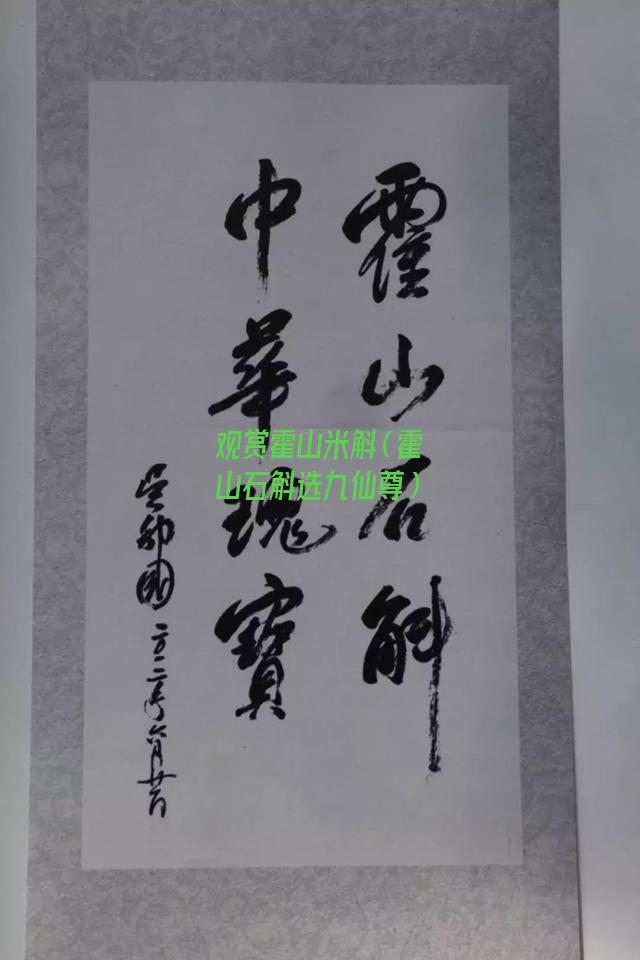 霍山石斛
中華瑰寶
吴邦國 二〇一二年六月廿一日
观赏霍山米斛(霍
山石斛选九仙尊)